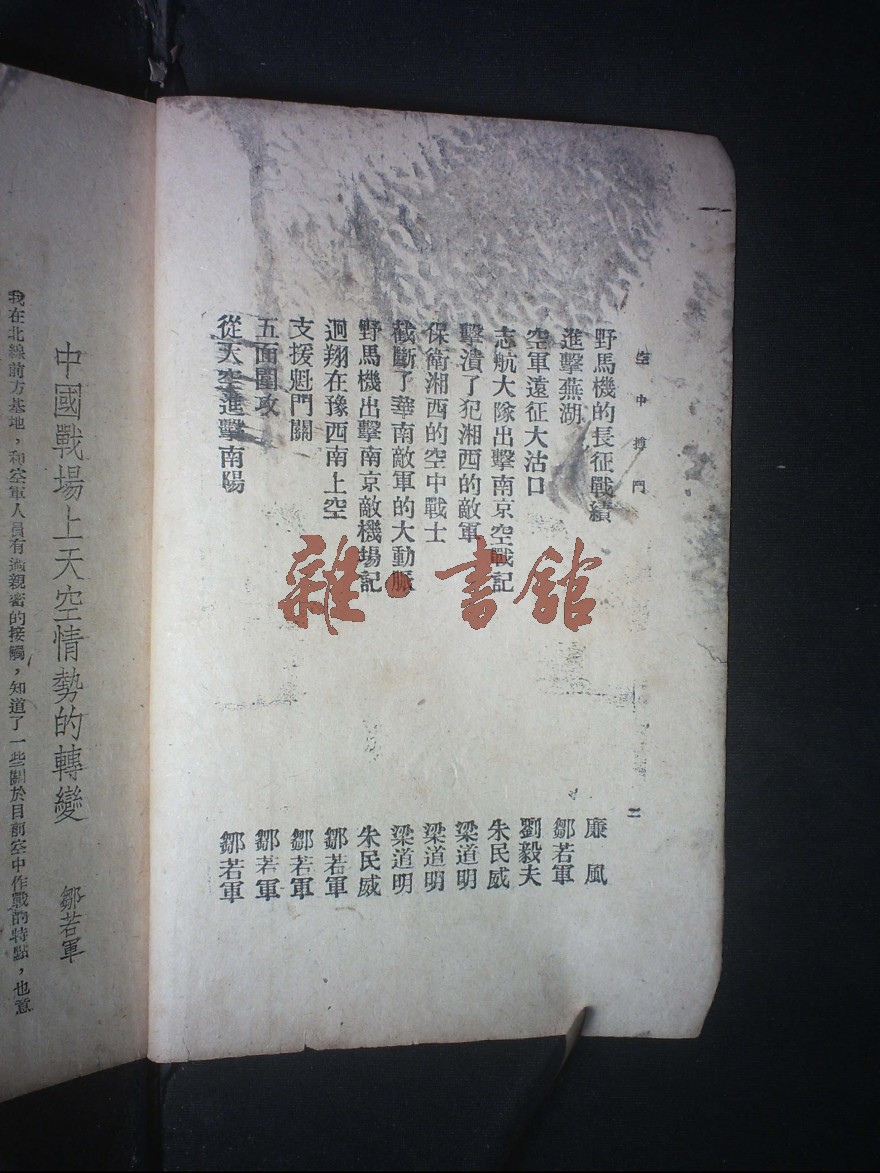 空中搏鬥
二
野馬機的長征戰績 廉風
進擊蕪湖 鄒若軍
空軍遠征大沽口 劉毅夫
志航大隊出擊南京空戰記 朱民威
擊潰了犯湘西的敵軍 梁道明
保衛湘西的空中戰士 梁道明
截斷了華南敵軍的大動脈 梁道明
野馬機出擊南京敵機場記 朱民威
迴翔在豫西南上空 鄒若軍
支援魁門關 鄒若軍
五面圍攻 鄒若軍
從天空進擊南陽 鄒若軍
雜·書館
中國戰場上天空情勢的轉變 鄒若軍
我在北線前方基地，和空軍人員有過親密的接觸，知道了一些關於目前空中作戰的特點，也意